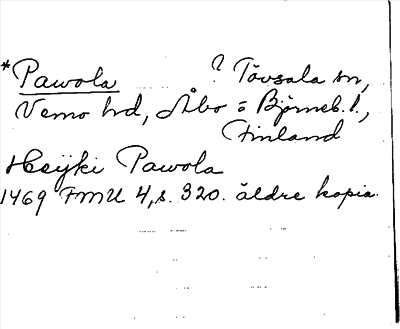 *Pawola ? Tövsala sn,
Vemo hrd, Åbo o Björneb. l.,
Finland
Heijki Pawola
1469 FMU 4, s. 320. äldre kopia.